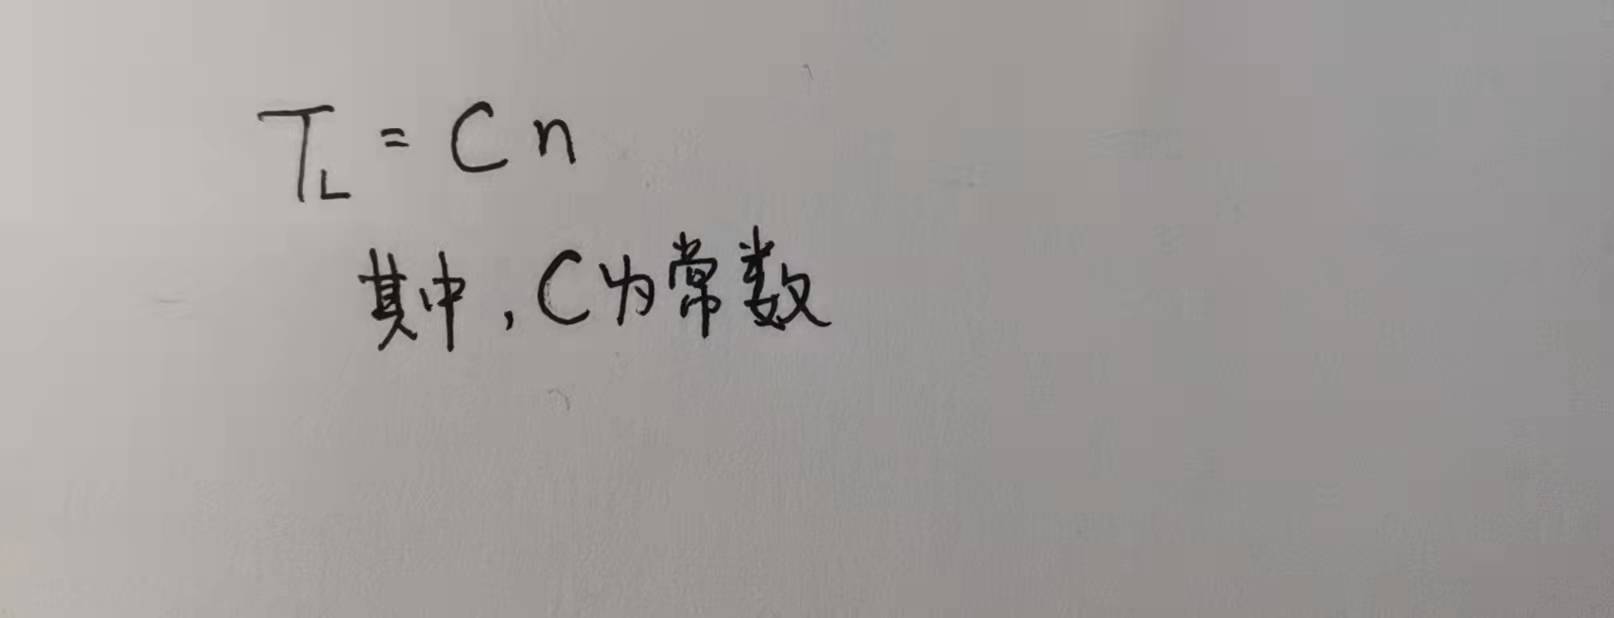 T_L = C n
其中，C为常数